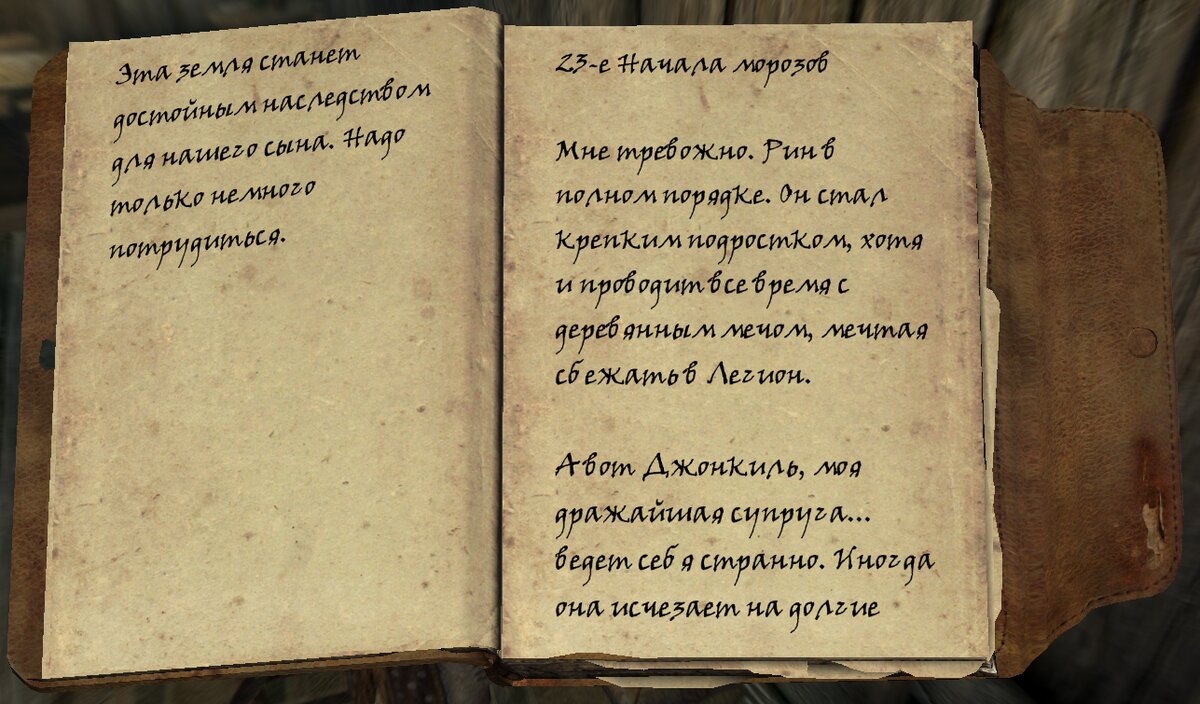 Эта земля станет
достойным наследством
для нашего сына. Надо
только немного
потрудиться.
23-е Начала морозов
Мне тревожно. Рин в
полном порядке. Он стал
крепким подростком, хотя
и проводит все время с
деревянным мечом, мечтая
сбежать в Легион.
А вот Джонкиль, моя
дражайшая супруга...
ведет себя странно. Иногда
она исчезает на долгие